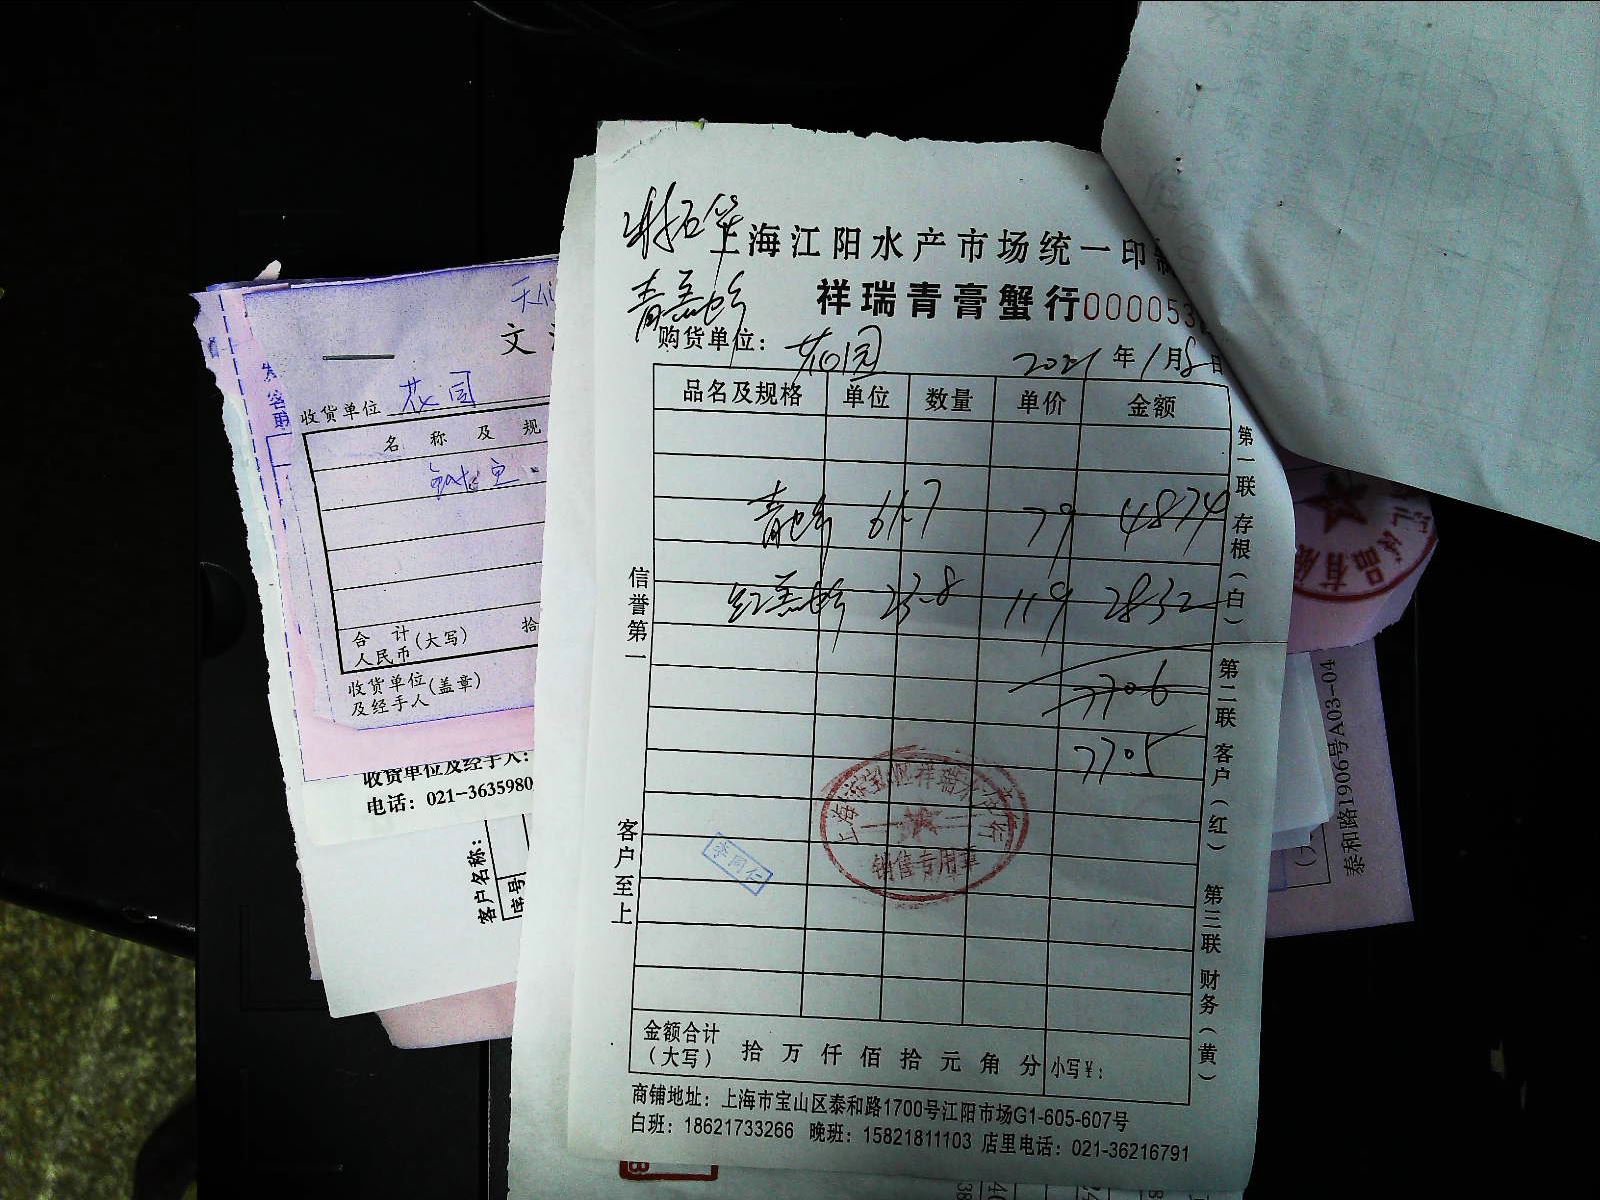 上海江阳水产市场统一印
祥瑞青膏蟹行000053
购货单位：花园 2021年1月8日
品名及规格 单位 数量 单价 金额
61.7 79 4874
23.8 119 2832
7706
7705
金额合计
（大写） 拾 万 仟 佰 拾 元 角 分 小写¥：
商铺地址：上海市宝山区泰和路1700号江阳市场G1-605-607号
白班：18621733266 晚班：15821811103 店里电话：021-36216791
信誉第一
客户至上
第一联 存根（白）
第二联 客户（红）
第三联 财务（黄）
销售专用章
李同仁
文
收货单位 花园
名 称 及 规
合 计
人民币(大写) 拾
收货单位
及经手人(盖章)
收货单位及经手人：
电话：021-3635980
客户名称：
序号
品有限
泰和路1906号A03-04